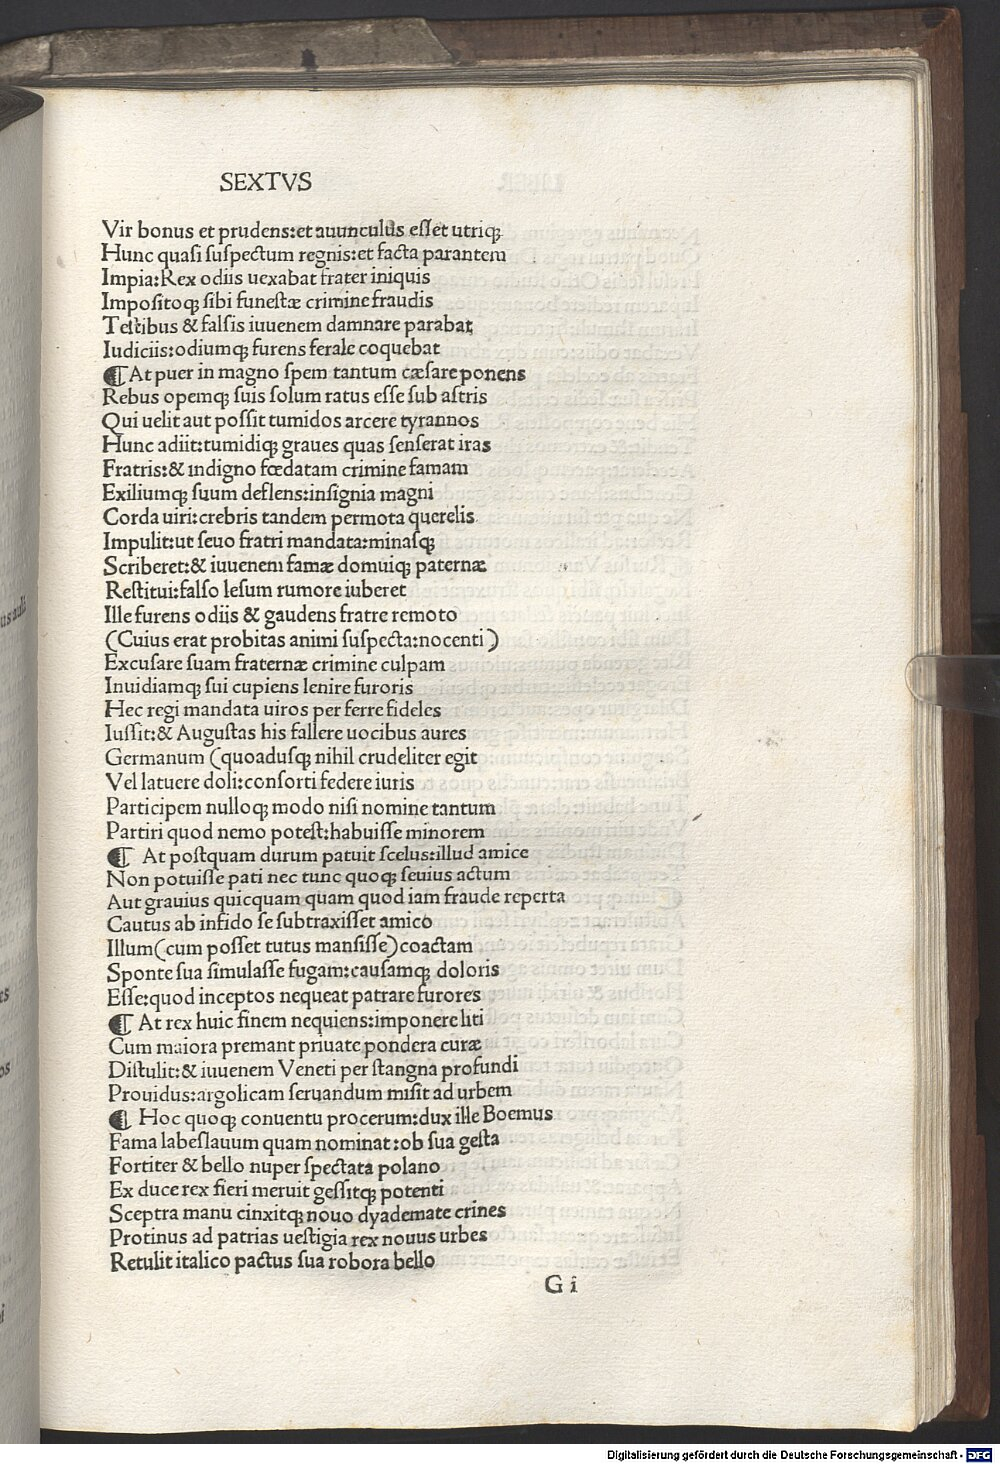 SEXTVS
Vir bonus et prudens:et auunculus eſſet utriqꝫ
Hunc quasi ſuſpectum regnis:et facta parantem
Impia:Rex odiis uexabat frater iniquis
Impoſitoqꝫ ſibi funeſtæ crimine fraudis
Teſtibus & falſis iuuenem damnare parabat
Iudiciis:odiumqꝫ furens ferale coquebat
¶At puer in magno ſpem tantum cæſare ponens
Rebus opemqꝫ ſuis ſolum ratus eſſe ſub aſtris
Qui uelit aut poſſit tumidos arcere tyrannos
Hunc adiit:tumidiqꝫ graues quas ſenſerat iras
Fratris:& indigno fœdatam crimine famam
Exiliumqꝫ ſuum deflens:inſignia magni
Corda uiri:crebris tandem permota querelis
Impulit:ut ſeuo fratri mandata:minaſqꝫ
Scriberet:& iuueneni famæ domuiqꝫ paternæ
Reſtitui:falſo leſum rumore iuberet
Ille furens odiis & gaudens fratre remoto
(Cuius erat probitas animi ſuſpecta:nocenti)
Excuſare ſuam fraternæ crimine culpam
Inuidiamqꝫ ſui cupiens lenire furoris
Hec regi mandata uiros per ferre fideles
Iuſſit:& Auguſtas his fallere uocibus aures
Germanum (quoaduſqꝫ nihil crudeliter egit
Vel latuere doli:conſorti federe iuris
Participem nulloqꝫ modo niſi nomine tantum
Partiri quod nemo poteſt:habuiſſe minorem
¶ At poſtquam durum patuit ſcelus:illud amice
Non potuiſſe pati nec tunc quoqꝫ ſeuius actum
Aut grauius quicquam quam quod iam fraude reperta
Cautus ab infido ſe ſubtraxiſſet amico
Illum(cum poſſet tutus manſiſſe)coactam
Sponte ſua ſimulaſſe fugam:cauſamqꝫ doloris
Eſſe:quod inceptos nequeat patrare furores
¶ At rex huic finem nequiens:imponere liti
Cum maiora premant priuate pondera curæ
Diſtulit:& iuuenem Veneti per ſtangna profundi
Prouidus:argolicam ſeruandum miſit ad urbem
¶ Hoc quoqꝫ conuentu procerum:dux ille Boemus
Fama labeſlauum quam nominat:ob ſua geſta
Fortiter & bello nuper ſpectata polano
Ex duce rex fieri meruit geſſitqꝫ potenti
Sceptra manu cinxitqꝫ nouo dyademate crines
Protinus ad patrias ueſtigia rex nouus urbes
Retulit italico pactus ſua robora bello
G i
Digitalisierung gefördert durch die Deutsche Forschungsgemeinschaft - DFG